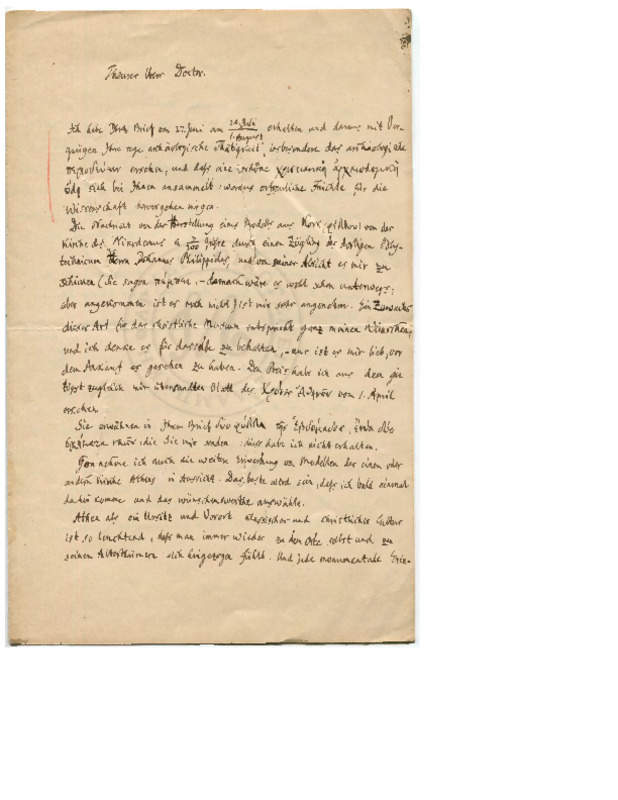 Theurer Herr Doctor.
Ich habe Ihren Brief vom 22. Juni am 20. Juli / 1. August erhalten und daraus mit Ver-
gnügen Ihre rege archäologische Thätigkeit, insbesondere das archäologische
ersehen, und daß eine schöne χριστιανικὴ ἀρχαιολογικὴ
sich bei Ihnen ansammelt: woraus erfreuliche Früchte für die
Wissenschaft hervorgehen mögen.
Die Nachricht von der Herstellung eines Modells aus Kork (φελλοῦ) von der
Kirche des Nikodemus durch einen Zögling des dortigen Poly-
technicum Herrn Johannes Philippides, und von seiner Absicht es mir zu
schicken (Sie sagen – darnach wäre es wohl schon unterwegs;
aber angekommen ist es noch nicht) ist mir sehr angenehm. Ein Zuwachs
dieser Art für das christliche Museum entspricht ganz meinen Wünschen,
und ich denke es für dasselbe zu behalten, – nur ist es mir lieb, vor
dem Ankauf es gesehen zu haben. Den Preis habe ich aus dem
zugleich mir übersandten Blatt des Ἀθηνῶν vom 1. April
ersehen.
Sie erwähnen in Ihrem Brief δύο φύλλα τῆς
die Sie mir senden: diese habe ich nicht erhalten.
Gern nehme ich auch die weitere Erwerbung von Modellen der einen oder
andern Kirche Athens in Aussicht. Das beste wird sein, daß ich bald einmal
dahin komme und das wünschenswerthe auswähle.
Athen als ein Ursitz und Vorort klassischer und christlicher Cultur
ist so leuchtend, daß man immer wieder zu dem Orte selbst und zu
seinen Alterthümern sich hingezogen fühlt. Und jede monumentale Erin-